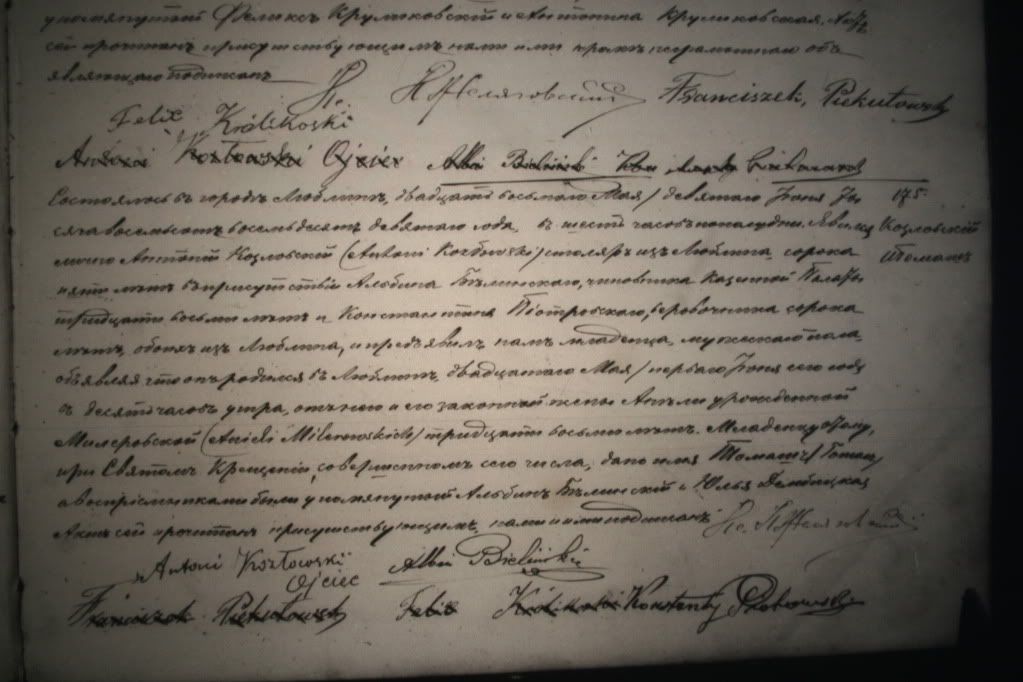 упомянутый Феликсъ Круликовскій и Антонина Круликовская. Актъ
сей прочитанъ присутствующимъ нами и
являющаго подписанъ
Felix Królikoski
Franciszek Piekutowski
Antoni Kozłowski Ojciec Albin Bieliński
Состоялось въ городѣ Люблинѣ, двадцать восьмаго Мая / девятаго Іюня Ты 175.
сяча восемьсотъ восемьдесятъ девятаго года, въ шесть часовъ пополудни. Явился Козловскій
лично Антоній Козловскій (Antoni Kozłowski) столяръ изъ Люблина сорока Томашъ
пяти лѣтъ въ присутствіи Альбина Бѣлинскаго, чиновника Казенной Палаты
тридцати восьми лѣтъ и Константина Піотровскаго, веровочника сорока
лѣтъ, обоихъ изъ Люблина, и предъявилъ намъ младенца, мужескаго пола,
объявляя что онъ родился въ Люблинѣ, двадцатаго Мая / перваго Іюня сего года
въ десять часовъ утра, отъ него и его законной жены Анѣли урожденной
Милеровской (Anieli Milerowskich) тридцати восьми лѣтъ. Младенцу этому,
при Святомъ Крещеніи, совершенномъ сего числа, дано имя Томашъ
а воспріемниками были упомянутый Альбинъ Бѣлинскій и Юлья Дембицкая
Актъ сей прочитанъ присутствующимъ нами и ими подписанъ
Antoni Kozłowski Albin Bieliński
Ojciec
Franciszek Piekutowski Felix Królikoski Konstanty Piotrowski